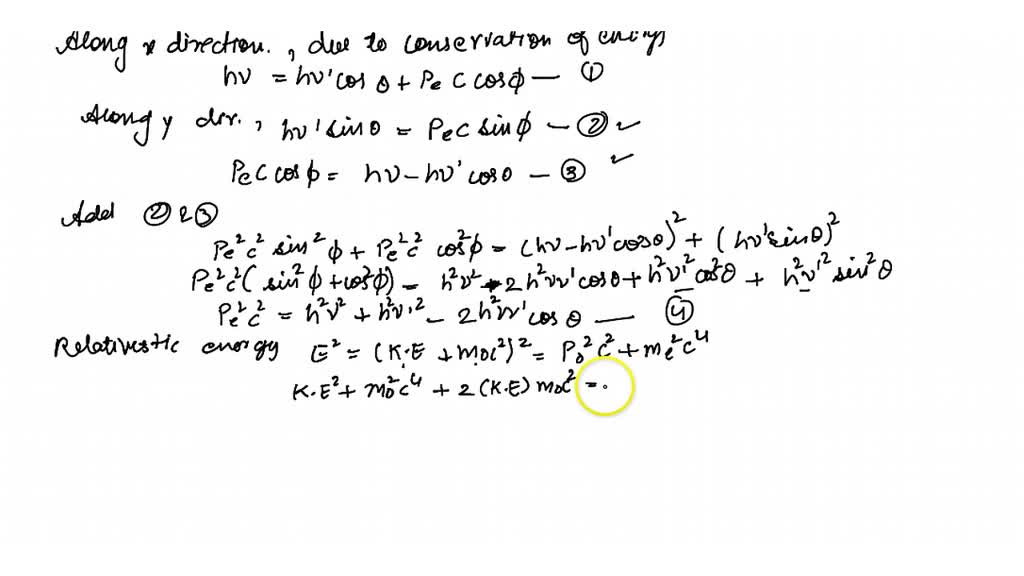 Along x direction. , due to conservation of energy
hν = hν' cos θ + Pe C cosϕ — ①
Along y dir. , hν' sinθ = Pe C sinϕ — ② ✓
Pe C cosϕ = hν - hν' cosθ — ③ ✓
Add ② & ③
Pe²c² sin²ϕ + Pe²c² cos²ϕ = (hν - hν'cosθ)² + (hν'sinθ)²
Pe²c² (sin²ϕ + cos²ϕ) = h²ν² - 2h²νν' cosθ + h²ν'² cos²θ + h²ν'² sin²θ
Pe²c² = h²ν² + h²ν'² - 2h²νν' cos θ — ④
Relativestic energy E² = (K.E + m₀c²)² = P₀²c² + me²c⁴
K.E² + m₀²c⁴ + 2 (K.E) m₀c² = .